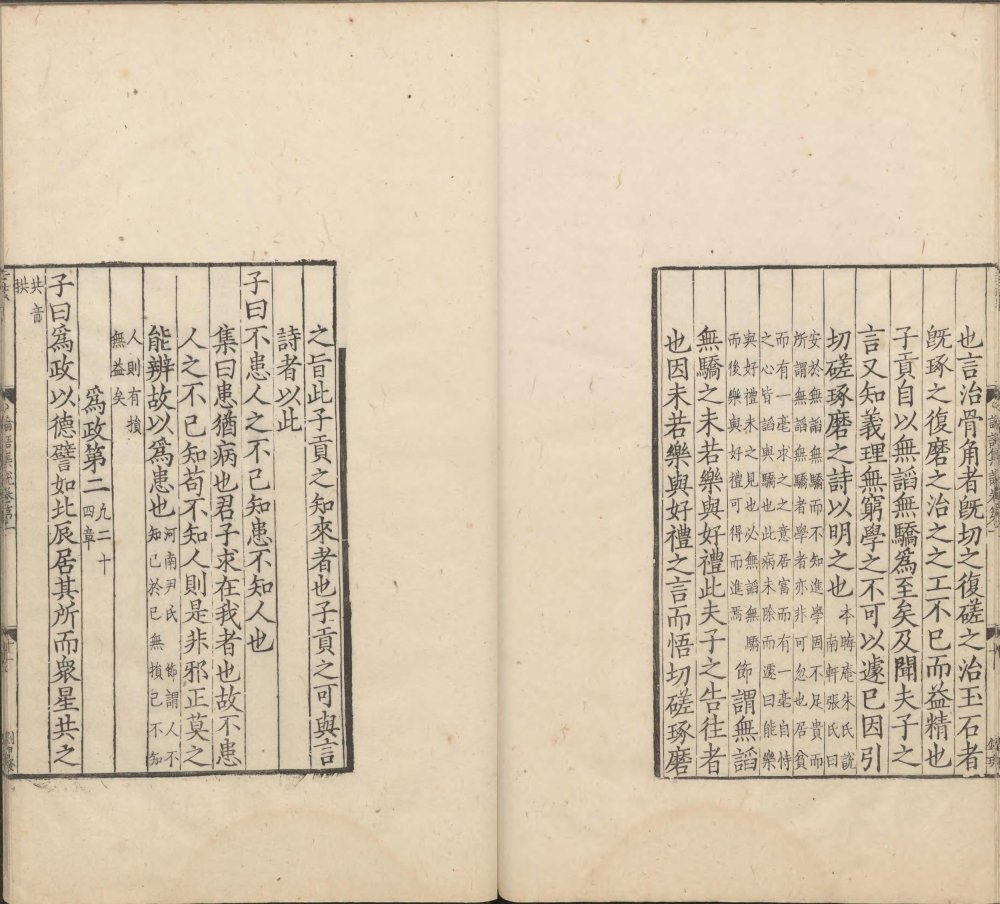 也言治骨角者旣切之復磋之治玉石者
旣琢之復磨之治之之工不已而益精也
子貢自以無謟無驕爲至矣及聞夫子之
言又知義理無窮學之不可以遽已因引
切磋琢磨之詩以明之也
本晦庵朱氏說
南軒張氏曰
安於無謟無驕而不知進學固不足貴而
所謂無謟無驕者學者亦非可忽也居貧
而有一毫求之之意居富而有一毫自恃
之心皆謟與驕也此病未除而遽曰能樂
與好禮未之見也必無謟無驕
而後樂與好禮可得而進焉
節謂無謟
無驕之未若樂與好禮此夫子之告往者
也因未若樂與好禮之言而悟切磋琢磨
之旨此子貢之知來者也子貢之可與言
詩者以此
子曰不患人之不己知患不知人也
集曰患猶病也君子求在我者也故不患
人之不己知苟不知人則是非邪正莫之
能辨故以爲患也
河南尹氏
節謂人不
知己於己無損己不知
人則有損
無益矣
爲政第二
凡二十
四章
子曰爲政以德譬如北辰居其所而衆星共之
共音
拱